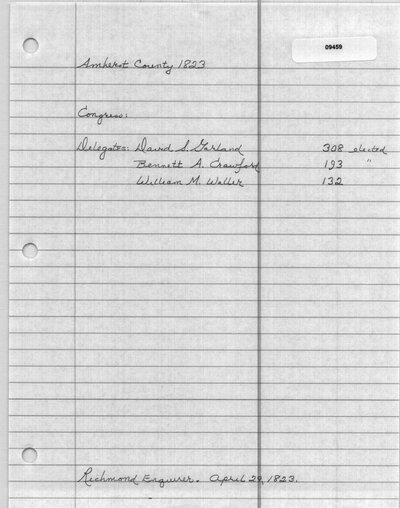 09459
Amherst County 1823
Congress:
Delegates: David S. Garland 308 elected
Bennett A. Crawford 193 "
William M. Waller 132
Richmond Enquirer. April 29, 1823.